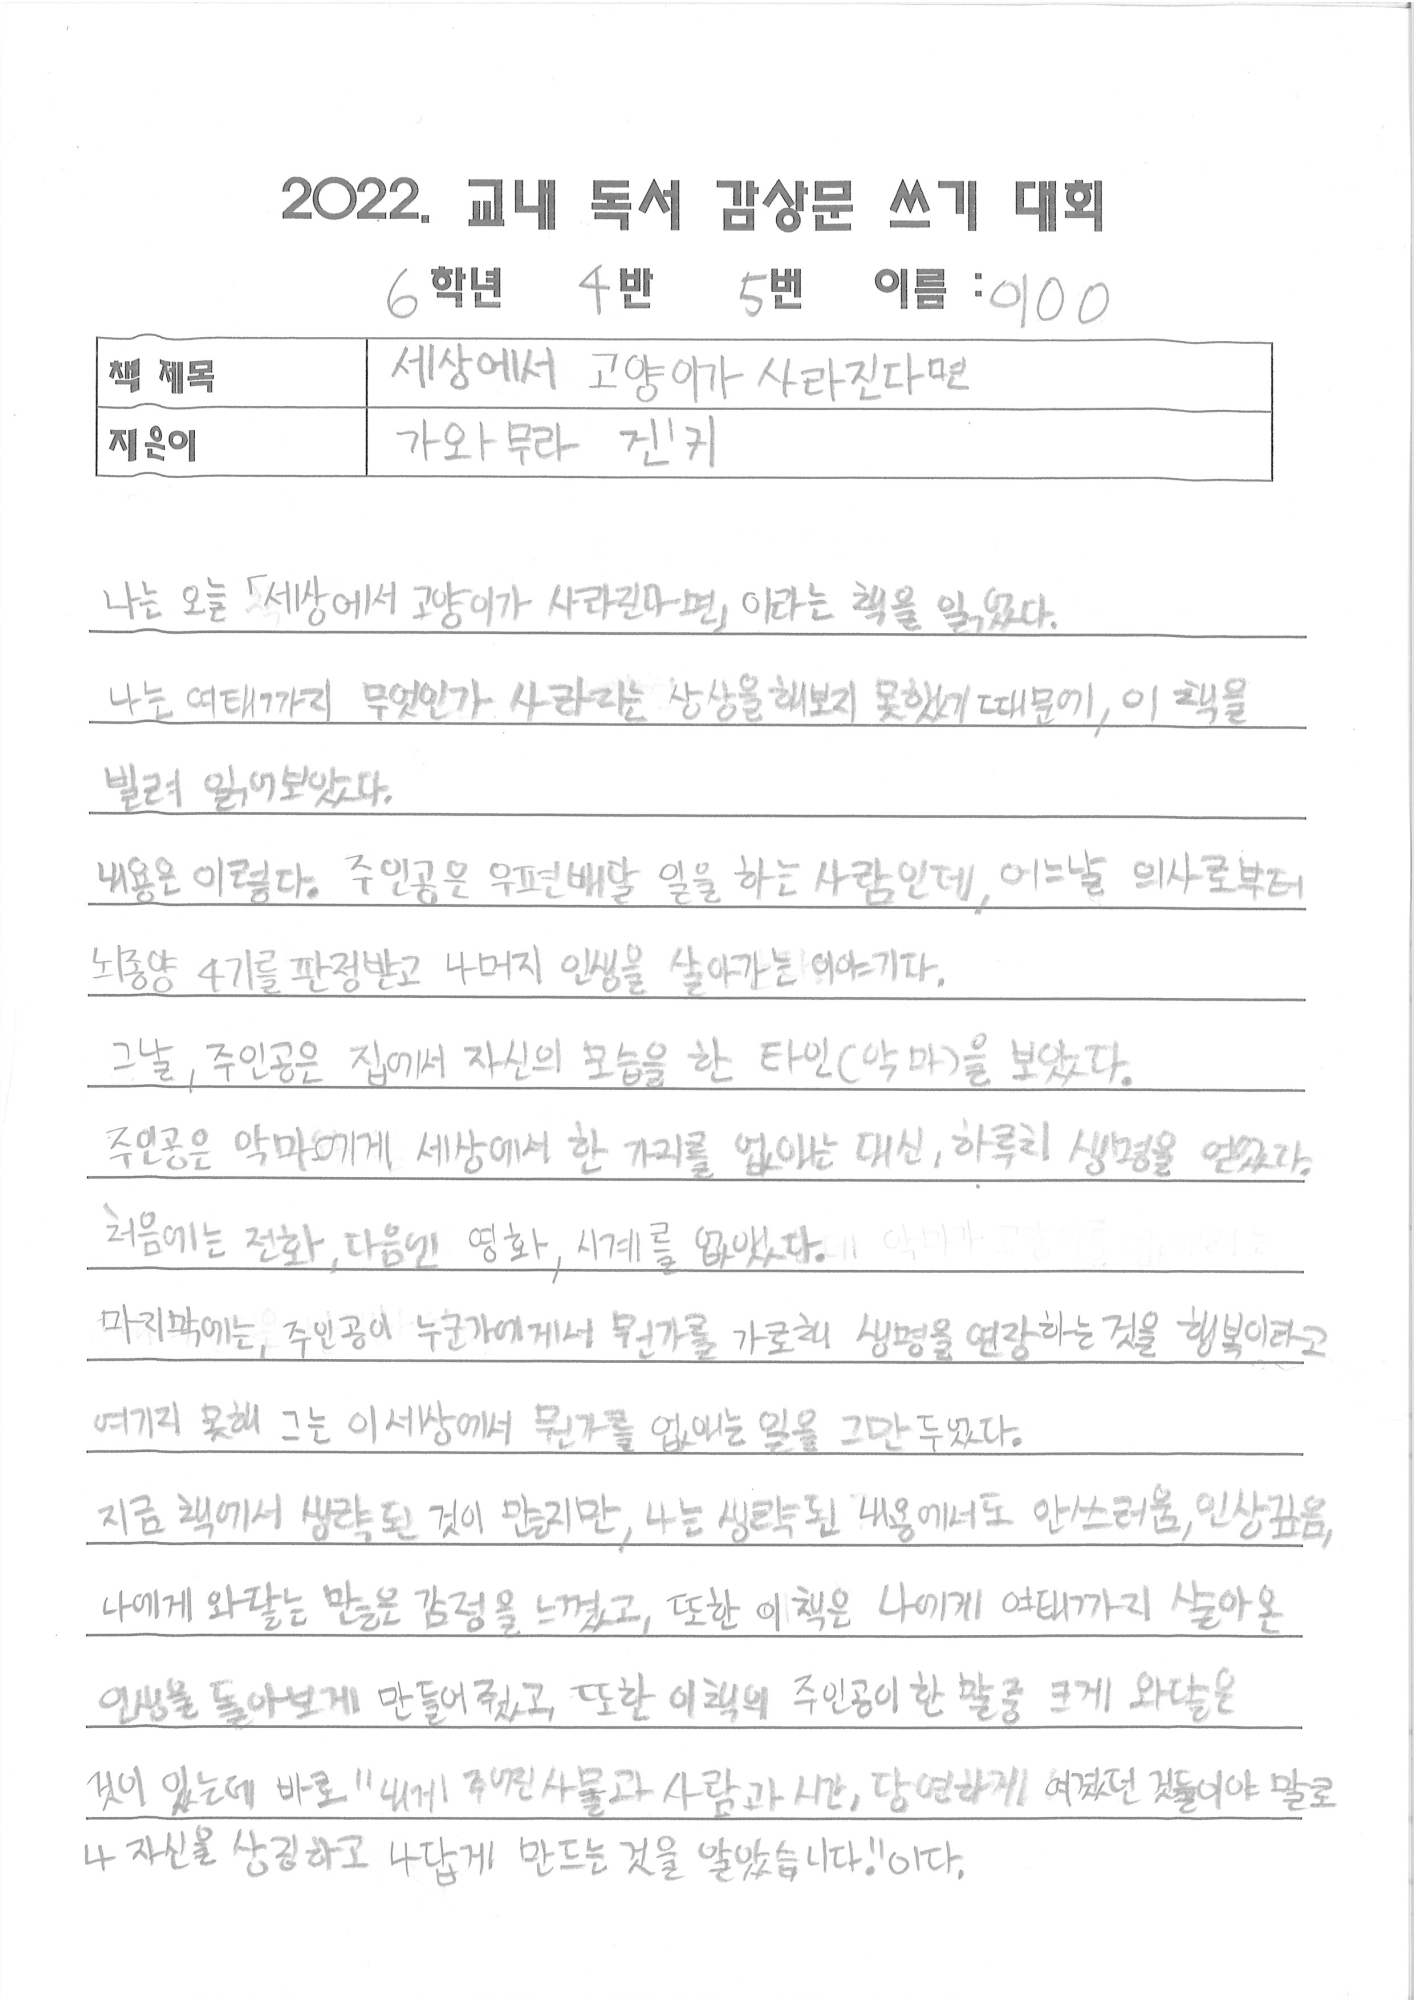 2022. 교내 독서 감상문 쓰기 대회
6학년 4반 5번 이름 : 이OO
책 제목 세상에서 고양이가 사라진다면
지은이 가와무라 겐키
나는 오늘 「세상에서 고양이가 사라진다면」 이라는 책을 읽었다.
나는 여태까지 무엇인가 사라지는 상상을 해보지 못했기 때문에, 이 책을
빌려 읽어보았다.
내용은 이렇다. 주인공은 우편배달 일을 하는 사람인데, 어느날 의사로부터
뇌종양 4기를 판정받고 나머지 인생을 살아가는 이야기다.
그날, 주인공은 집에서 자신의 모습을 한 타인(악마)을 보았다.
주인공은 악마에게 세상에서 한 가지를 없애는 대신, 하루치 생명을 얻었다.
처음에는 전화, 다음엔 영화, 시계를 없앴다.
마지막에는, 주인공이 누군가에게서 뭔가를 가로채 생명을 연장하는 것을 행복이라고
여기지 못해 그는 이 세상에서 뭔가를 없애는 일을 그만 두었다.
지금 책에서 생략된 것이 많지만, 나는 생략된 내용에서도 안쓰러움, 인상깊음,
나에게 와닿는 많은 감정을 느꼈고, 또한 이 책은 나에게 여태까지 살아온
인생을 돌아보게 만들어 줬고, 또한 이 책의 주인공이 한 말중 크게 와닿은
것이 있는데 바로 "내게 주어진 사물과 사람과 시간, 당연하게 여겼던 것들이야 말로
나 자신을 상징하고 나답게 만드는 것을 알았습니다." 이다.